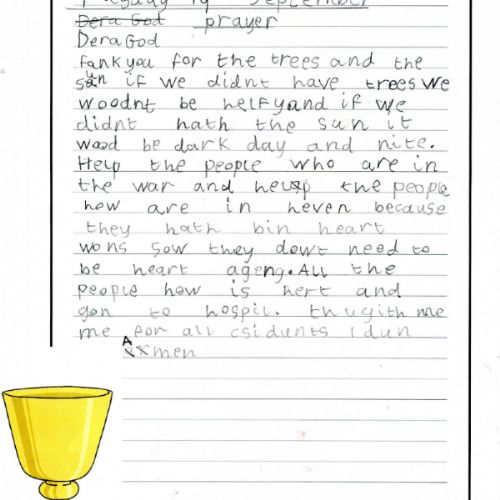 19 September
Dera God prayer
Dera God
fank you for the trees and the
sun if we didnt have trees we
woodnt be helfy and if we
didnt hath the sun it
wood be dark day and nite.
Help the people who are in
the war and help the people
how are in heven because
they hath bin heart
wons sow they dowt need to
be heart ageng. All the
people how is hert and
gon to hospil. thugith me
me for all csidunts I dun
Amen